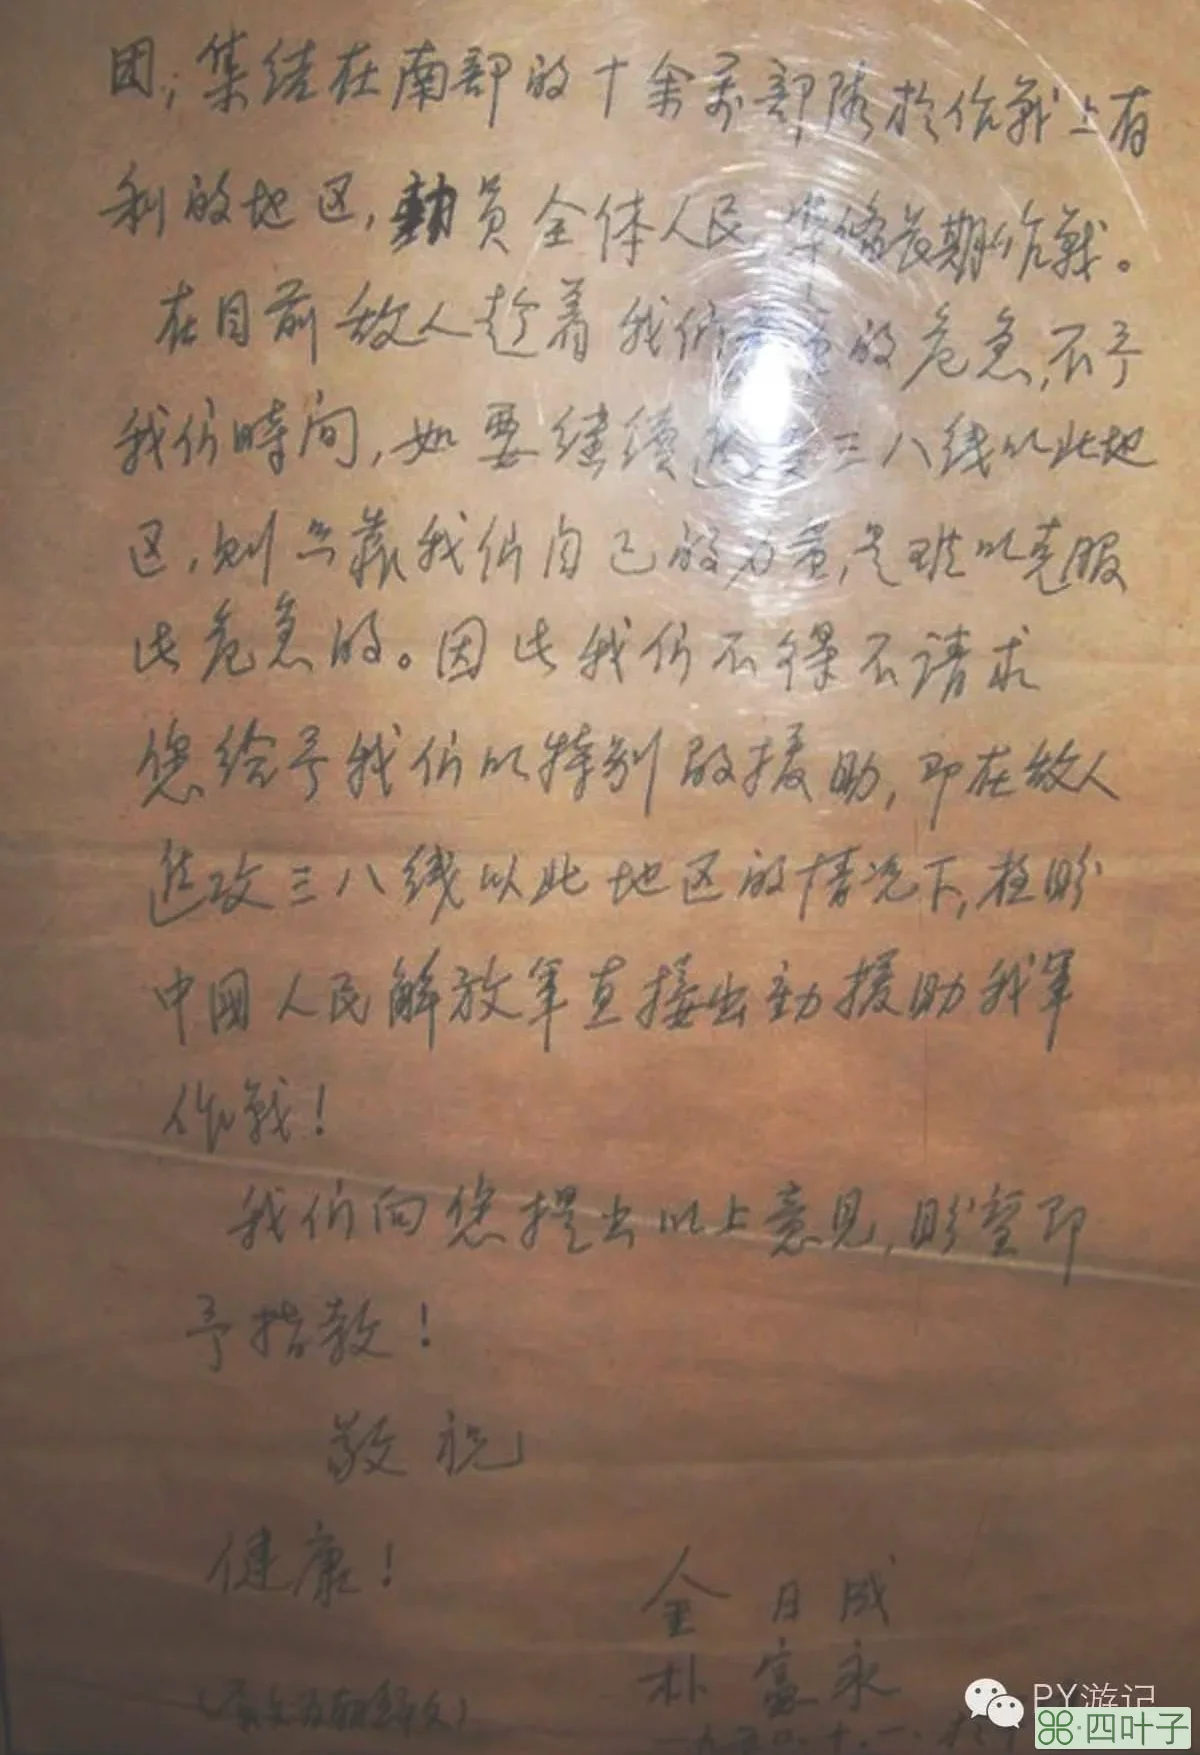 团；集结在南部的十余万部队於作战上有
利的地区，動員全体人民，准备长期作战。
在目前敌人趁着我们的危急，不予
我们時间，如要继续进攻三八线以北地
区，则只靠我们自己的力量，是难以克服
此危急的。因此我们不得不请求
您给予我们以特别的援助，即在敌人
进攻三八线以北地区的情况下，极盼
中國人民解放军直接出動援助我军
作战！
我们向您提出以上意见，盼望即
予指教！
敬祝
健康！
金日成
朴宪永
一九五〇.十.一.於
（原文为朝鲜文）
PY游记
四叶子